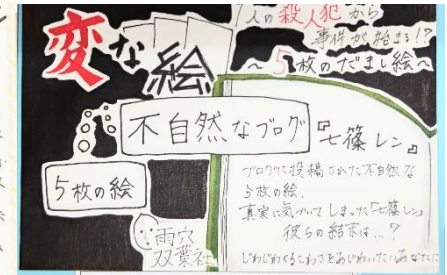 変な絵
人の殺人犯から
事件が始まる!?
〜5枚のだまし絵〜
不自然なブログ
『七篠レン』
5枚の絵
ブログに投稿された不自然な
5枚の絵.
真実に気づいてしまった「七篠レン」
彼らの結末は…?
じわじわくるこわさをあじわいたいあなたに
雨穴
双葉社